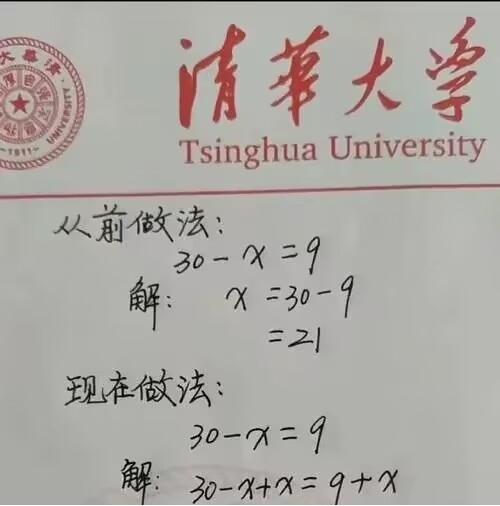 清華大学
Tsinghua University
UNIVERSITY
-1911-
从前做法:
30-x=9
解: x=30-9
=21
现在做法:
30-x=9
解: 30-x+x=9+x